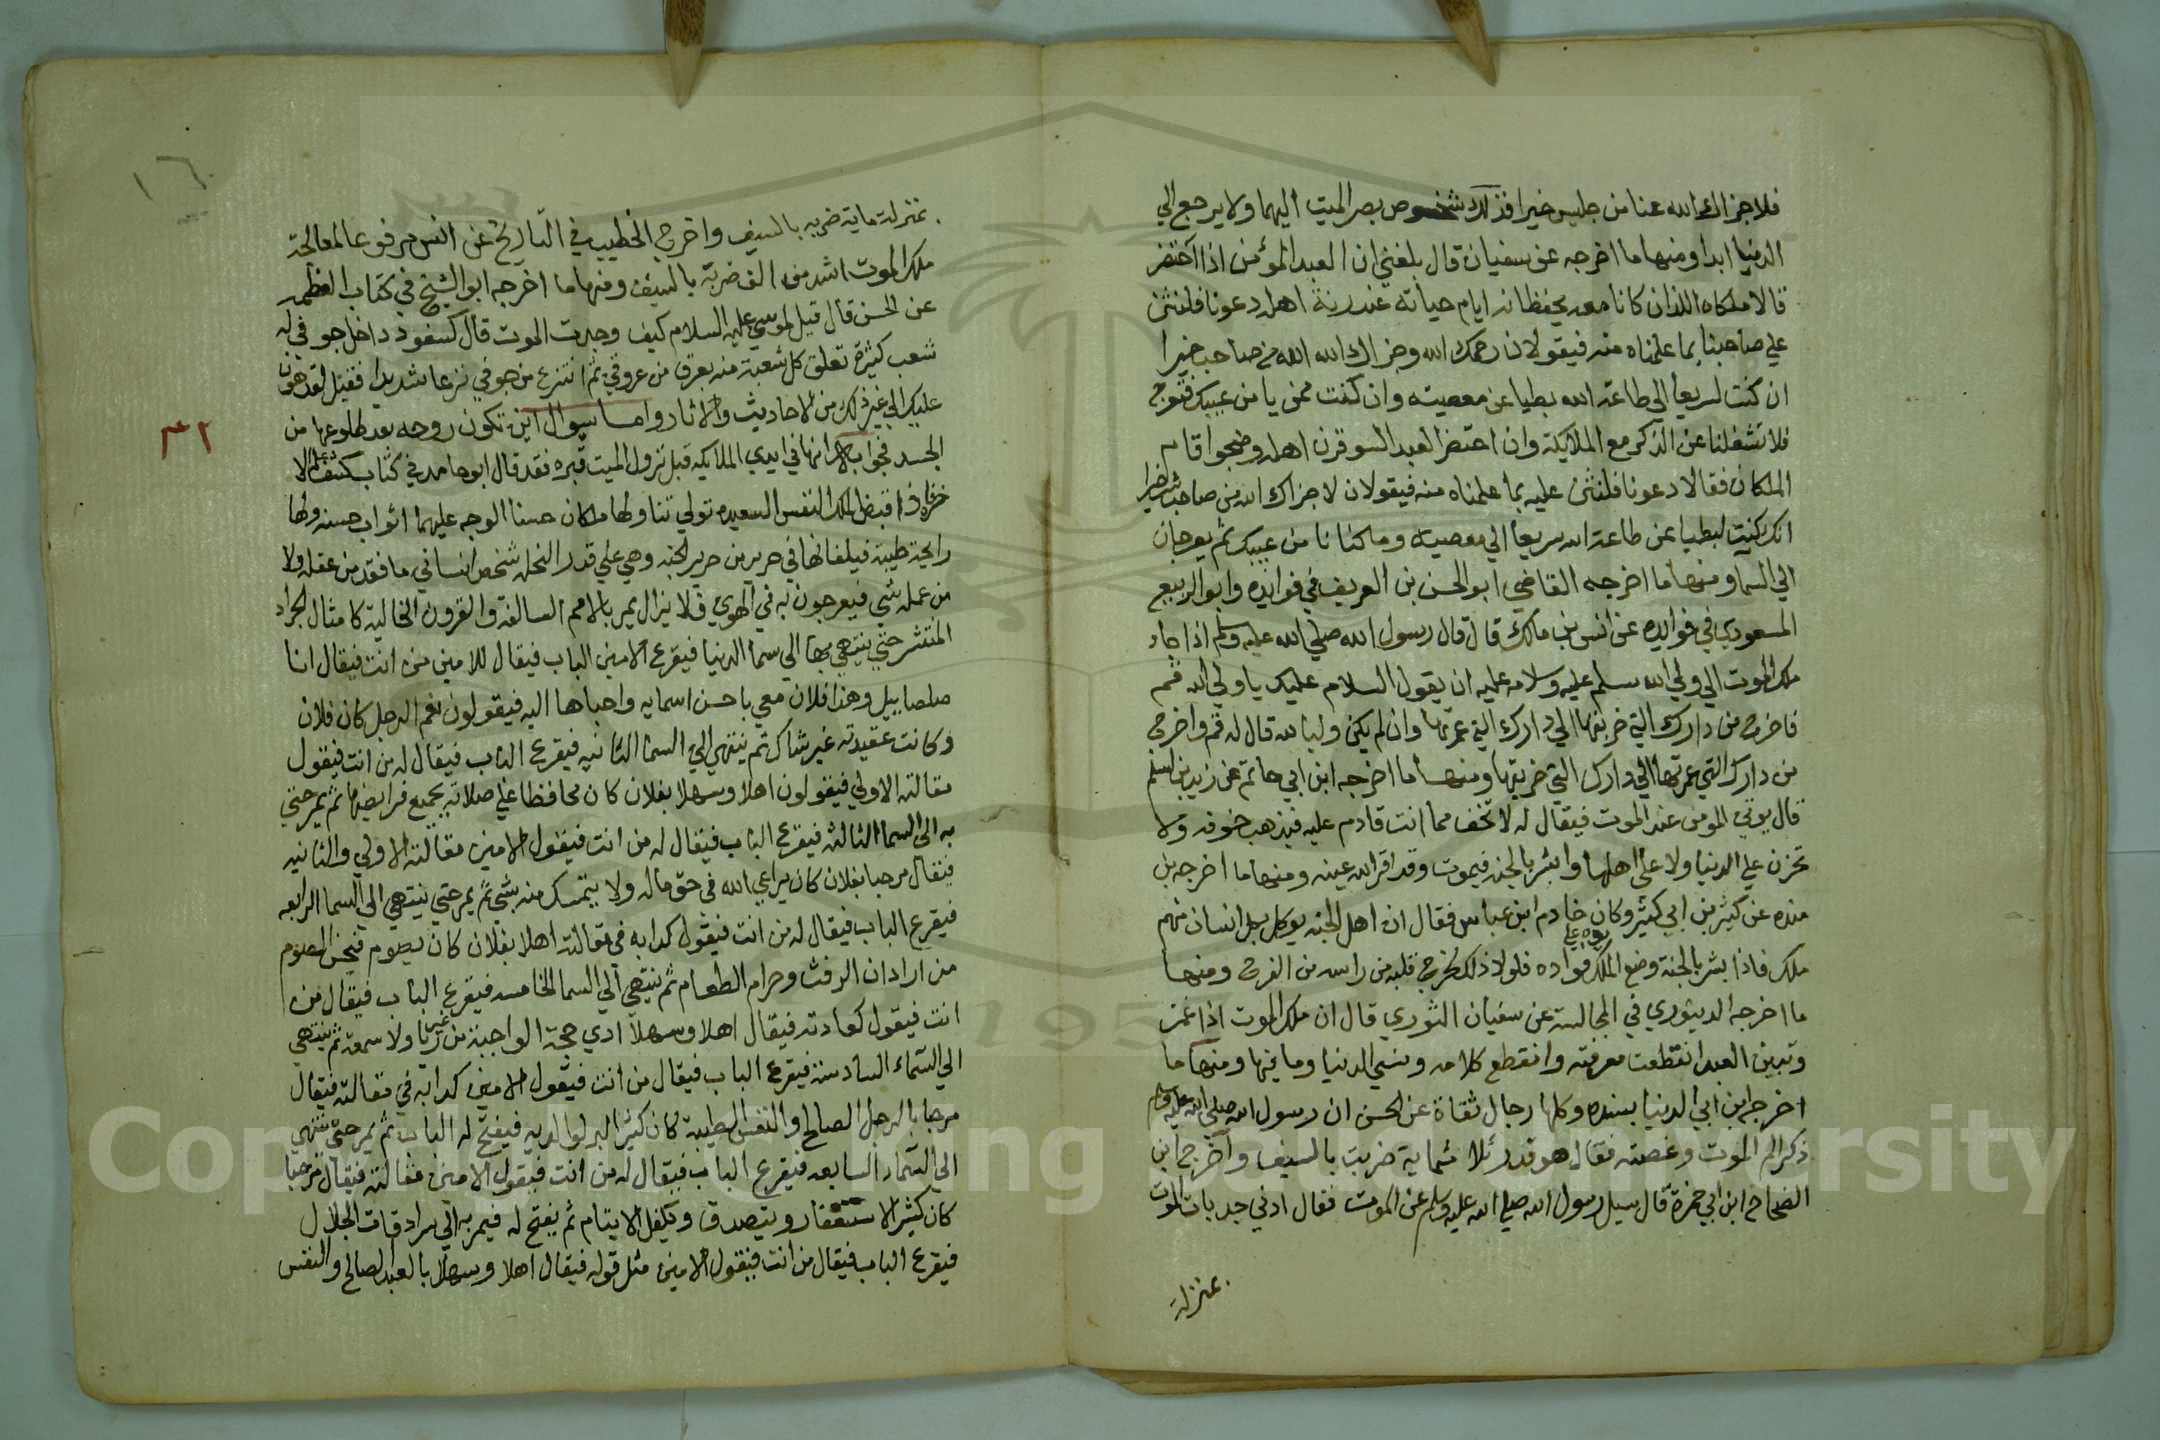 فلا جزاك الله عنا من جليس خيرا فذلك شخوص بصر الميت اليهما ولا يرجع الي
الدنيا ابدا ومنها ما اخرجه عن سفيان قال بلغني ان العبد المؤمن اذا احتضر
قالا ملكاه اللذان كانا معه يحفظانه ايام حياته عند رنة اهله دعونا فلنثن
علي صاحبنا بما علمناه منه فيقولان رحمك الله وجزاك الله من صاحب خيرا
ان كنت لسريعا الي طاعة الله بطيا عن معصيته وان كنت ممن يامن عيبك فتعرج
فلا تشغلنا عن الذكر مع الملايكة وان احتضر العبد السو فرن اهله وضجوا قام
الملكان فقالا دعونا فلنثن عليه بما علمناه منه فيقولان لا جزاك الله من صاحب خيرا
انك كنت لبطيا عن طاعة الله سريعا الي معصيته وما كنا نامن عيبك ثم يعرجان
الي السما ومنها ما اخرجه القاضي ابو الحسن بن العريف في فوايده وابو الربيع
المسعودي في فوايده عن انس بن مالك قال قال رسول الله صلي الله عليه وسلم اذا جاء
ملك الموت الي ولي الله سلم عليه وسلامه عليه ان يقول السلام عليك يا ولي الله قم
فاخرج من دارك التي خربتها الي دارك التي عمرتها وان لم يكن وليا لله قال له قم واخرج
من دارك التي عمرتها الي دارك التي خربتها ومنها ما اخرجه ابن ابي حاتم عن زيد بن اسلم
قال يوتي المومن عند الموت فيقال له لا تخف مما انت قادم عليه فيذهب خوفه ولا
تحزن علي الدنيا ولا علي اهلها وابشر بالجنة فيموت وقد اقر الله عينه ومنها ما اخرجه بن
منده عن كثير بن ابي كثير وكان خادم ابن عباس فقال ان اهل الجنه يوكل بكل انسان منهم
ملك فاذا بشر بالجنة وضع الملك يده علي فواده فلولا ذلك لخرج قلبه من راسه من الفرح ومنها
ما اخرجه الدينوري في المجالسة عن سفيان الثوري قال ان ملك الموت اذا غمز
وتين العبد انقطعت معرفته وانقطع كلامه ونسي الدنيا وما فيها ومنها ما
اخرجه ابن ابي الدنيا بسنده وكلها رجال ثقاة عن الحسن ان رسول الله صلي الله عليه وسلم
ذكر الم الموت وغصته فقال هو قدر ثلاثماية ضربت بالسيف واخرج ابن
الضحاح ابن ابي حمزة قال سيل رسول الله صلي الله عليه وسلم عن الموت فقال ادني جبدات الموت
بمنزلة
١٦
بمنزلت ماية ضربه بالسيف واخرج الخطيب في التاريخ عن انس مرفوعا لمعالجة
ملك الموت اشد من الف ضربة بالسيف ومنها ما اخرجه ابو الشيخ في كتاب العظمه
عن الحسن قال قيل لموسي عليه السلام كيف وجدت الموت قال كسفود داخل جوفي له
شعب كثيرة تعلق كل شعبة منه بعرق من عروقي ثم انتزع من جوفي نزعا شديدا فقيل لقد هون
عليك الي غير ذلك من الاحاديث والاثار واما سوال اين تكون روحه بعد طلوعها من
٤٢
الجسد فجوابه انها في ايدي الملايكه قبل نزول الميت قبره فقد قال ابو حامد في كتاب كشف علم الا
خره فاذا قبض الملك النفس السعيده تولي تناولها ملكان حسنا الوجه عليهما اثواب حسنه ولها
رايحة طيبة فيلفانها في حرير من حرير الجنه وهي علي قدر النحله شخص انساني ما فقد من عقله ولا
من عمله شي فيعرجون به في الهوي فلا يزال يمر بالامم السالفة والقرون الخالية كامثال الجراد
المنتشر حتي ينتهي بها الي سما الدنيا فيقرع الامين الباب فيقال للامين من انت فيقال انا
صلصاييل وهذا فلان معي باحسن اسمايه واحباها اليه فيقولون نعم الرجل كان فلان
وكانت عقيدته غير شاك ثم ينتهي الي السما الثانيه فيقرع الباب فيقال له من انت فيقول
مقالته الاولي فيقولون اهلا وسهلا بفلان كان محافظا علي صلاته بجميع فرايضها ثم يمر حتي
به الي السما الثالثه فيقرع الباب فيقال له من انت فيقول الامين مقالته الاولي والثانيه
فيقال مرحبا بفلان كان يراعي الله في حق ماله ولا يتمسك منه بشي ثم يمر حتي ينتهي الي السما الرابعه
فيقرع الباب فيقال له من انت فيقول كدابه في مقالته اهلا بفلان كان يصوم فيحسن الصوم
من ادران الرفث وحرام الطعام ثم ينتهي الي السما الخامسه فيقرع الباب فيقال من
انت فيقول كعادته فيقال اهلا وسهلا ادي حجة الواجبة من غير ريا ولا سمعة ثم ينتهي
الي السماء السادسة فيقرع الباب فيقال من انت فيقول الامين كدابه في مقالته فيقال
مرحبا بالرجل الصالح والنفس الطيبة كان كثير البر لوالديه فيفتح له الباب ثم يمر حتي ينتهي
الي السماء السابعه فيقرع الباب فيقال له من انت فيقول الامين مقالته فيقال مرحبا
كان كثير الاستغفار ويتصدق ويكفل الايتام ثم يفتح له فيمر به الي سرادقات الجلال
فيقرع الباب فيقال من انت فيقول الامين مثل قوله فيقال اهلا وسهلا بالعبد الصالح والنفس
Copyright © King Saud University
195